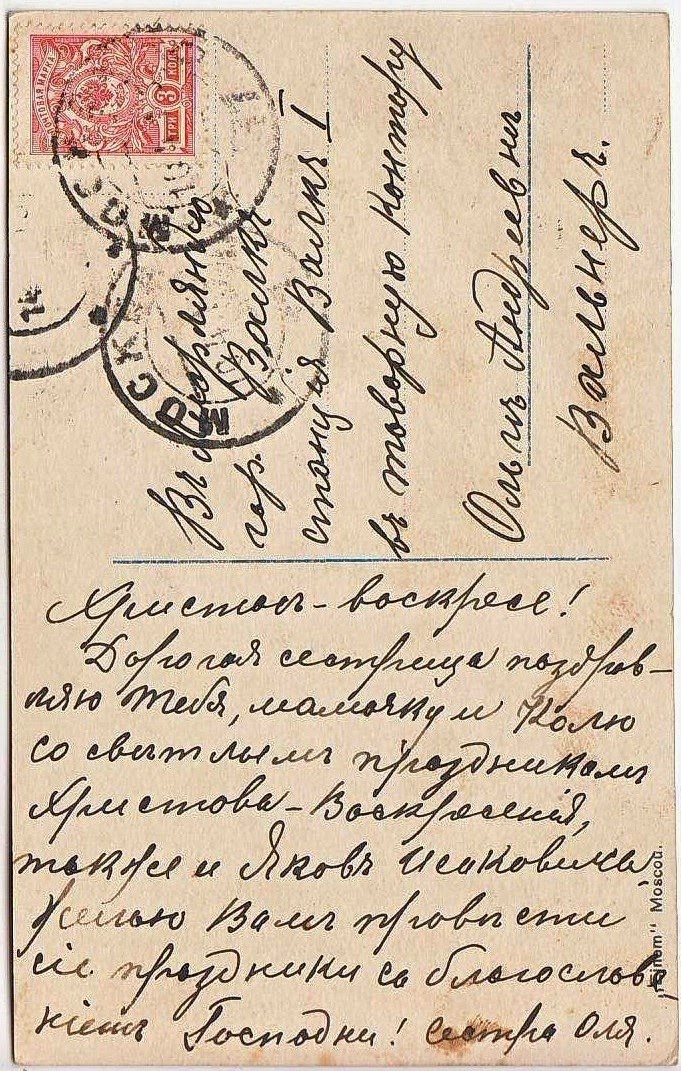 ПОЧТОВАЯ МАРКА
3 КОП
ТРИ
МОСКВА
Въ Лифляндію
гор. Валкъ
станція Валкъ I
въ товарную контору
Ольгѣ Андреевнѣ
Вальнеръ.
Христосъ-воскресе!
Дорогая сестрица поздрав-
ляю тебя, мамочку и Колю
со свѣтлымъ праздникомъ
Христова-Воскресенія,
также и Яковъ Исаковича
желаю Вамъ провѣсти
сіе праздники со благослове
ніемъ Господни! сестра Оля.
Moscou.